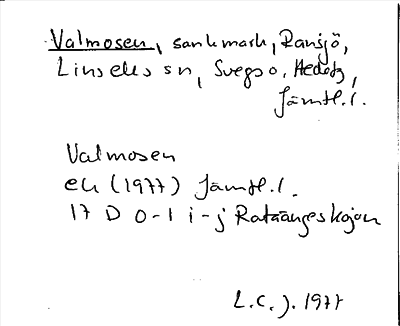 Valmosen, sankmark, Ransjö,
Linsells sn, Svegs o, Hedetg,
Jämtl. l.
Valmosen
ek (1977) Jämtl. l.
17 D 0-1 i-j Rataangeskojan
L.C.J. 1977